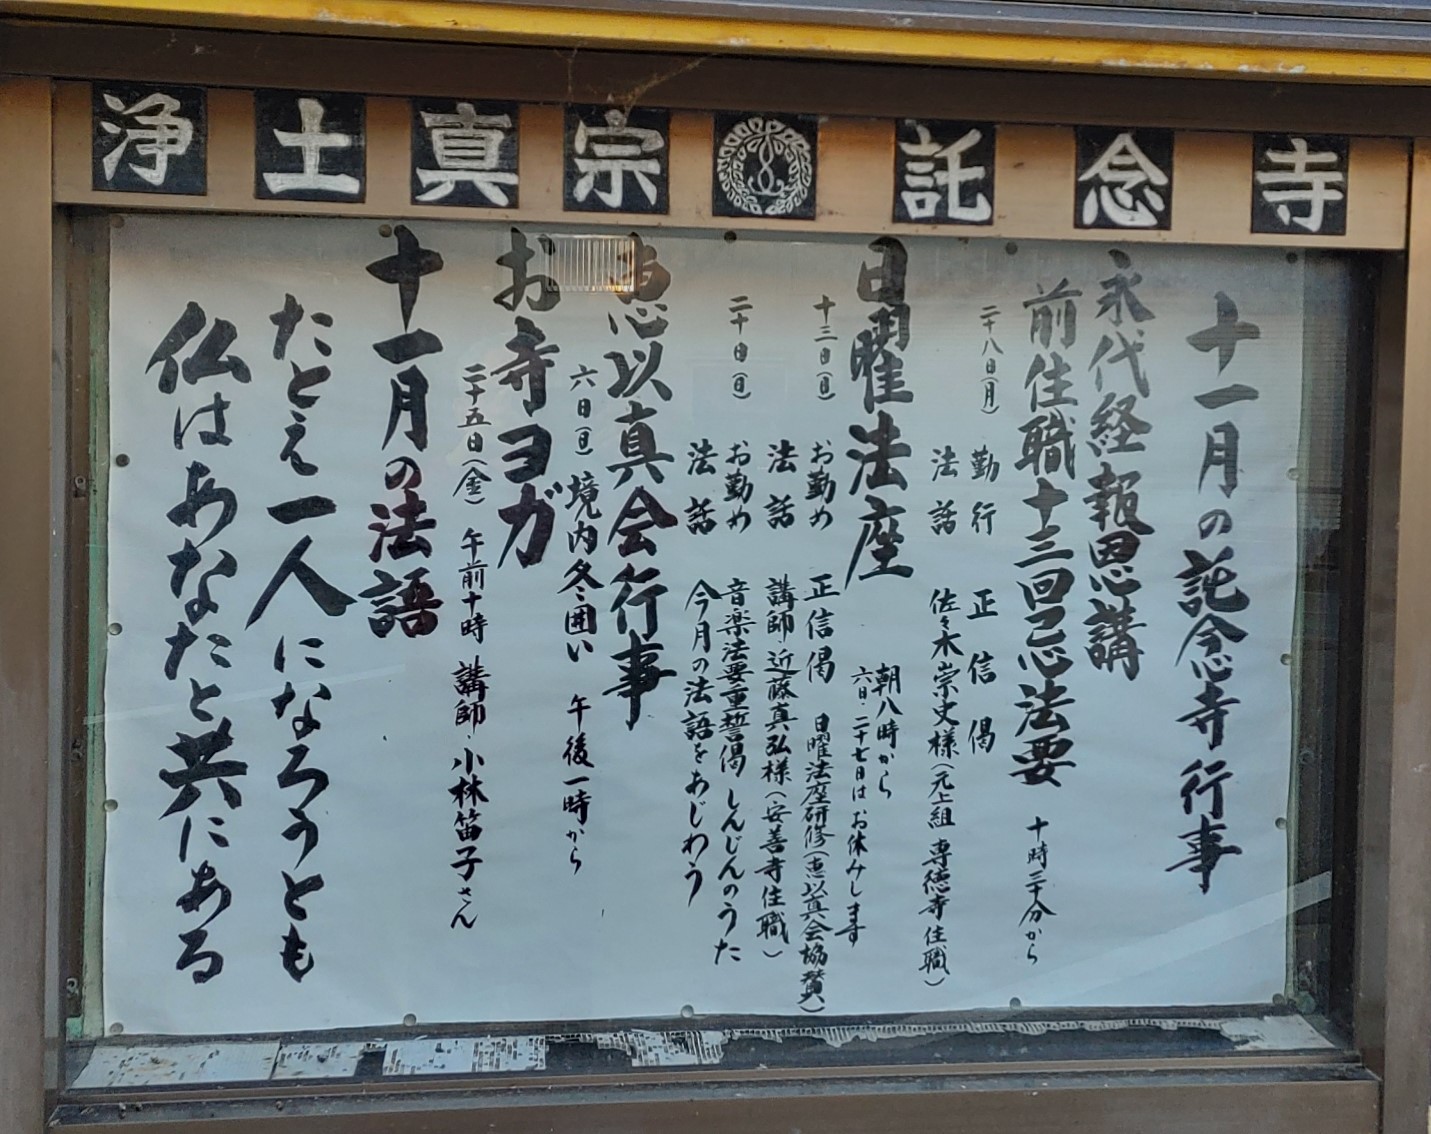 浄土真宗 託念寺
十一月の託念寺行事
永代経 報恩講
前住職十三回忌法要 十時三十分から
二十八日(月) 勤行 正信偈
法話 佐々木崇史様(元上組 専徳寺住職)
日曜法座 朝八時から
六日・二十七日はお休みします
十三日(日) お勤め 正信偈 日曜法座研修(恵以真会協賛)
法話 講師 近藤真弘様(安善寺住職)
二十日(日) お勤め 音楽法要重誓偈 しんじんのうた
法話 今月の法語をあじわう
恵以真会行事
六日(日) 境内冬囲い 午後一時から
お寺ヨガ
二十五日(金) 午前十時 講師 小林笛子さん
十一月の法語
たとえ一人になろうとも
仏はあなたと共にある